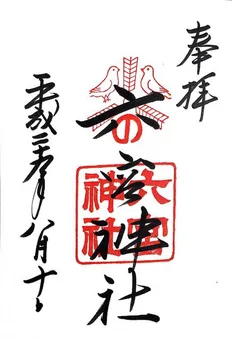 奉拝
六宮神社
の
六宮
神社
平成二十年八月十日